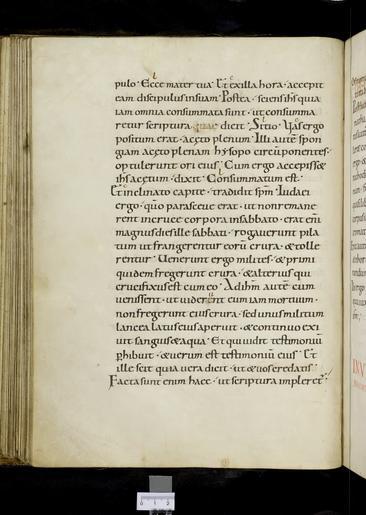 pulo · Ecce mater tua · Et ex illa hora · accepit
eam discipulus in suam · Postea · sciens ihs quia
iam omnia consummata sunt · ut consumma
retur scriptura dicit · Sitio · Vas ergo
positum erat · aceto plenum · Illi aute spon
giam aceto plenam hysopo circuponentes ·
optulerunt ori eius · Cum ergo accepisset
ihs acetum · dixit · Consummatum est ·
Et inclinato capite · tradidit spm · Iudaei
ergo · qm parasceue erat · ut non remane
rent in cruce corpora in sabbato · erat eni
magnus dies ille sabbati · rogauerunt pila
tum ut frangerentur eoru crura · & tolle
rentur · Uenerunt ergo milites · & primi
quidem fregerunt crura · & alterius qui
crucifixus est cum eo · Ad ihm aute cum
uenissent · ut uiderunt eum iam mortuum ·
non fregerunt eius crura · sed unus militum
lancea latus eius aperuit · & continuo exi
uit sanguis & aqua · Et qui uidit testimoniu
phibuit · & uerum est testimoniu eius · Et
ille scit quia uera dicit · ut & uos credatis ·
Facta sunt enim haec · ut scriptura impleret